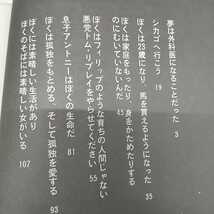 夢は外科医になることだった 3
シカゴへ行こう 19
ぼくは23歳になり、馬を買えるようになった 35
ぼくは家庭をもったり、身をかためたりする
のにむいていないんだ 45
ぼくはフィリップのような育ちの人間じゃない
悪党トム・リプレイをやらせてください 55
息子アントニーはぼくの生命だ 81
ぼくは孤独をもとめる、そして孤独を愛する 93
ぼくには素晴しい生活があり
ぼくのそばには素晴しい女がいる 107